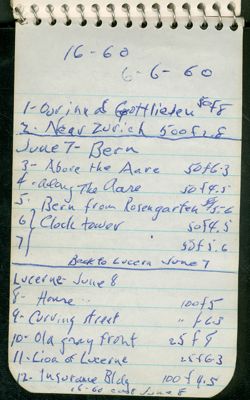 16-60
6-6-60
1- Gottlieben 50f8
2. Near Zurich 500f2.8
June 7- Bern
3- Above the Aare 50f6.3
4- along the Aare 50f4.5
5. Bern from Rosengarten 5-6
6 Clock tower 50f4.5
7 50f5.6
Back to Lucern June 7
Lucerne- June 8
8- House " 100f5
9- Curving street " f6.3
10- Old gray front 25f8
11- Lion of Lucerne 25f6.3
12- Insurance Bldg 100f4.5
16-60 June 8